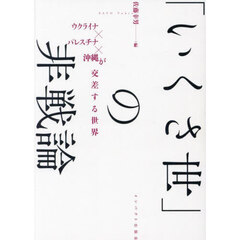 「いくさ世」
の
非戦論
ウクライナ×
パレスチナ×
沖縄が
交差する世界
佐藤幸男 編
インパクト出版会